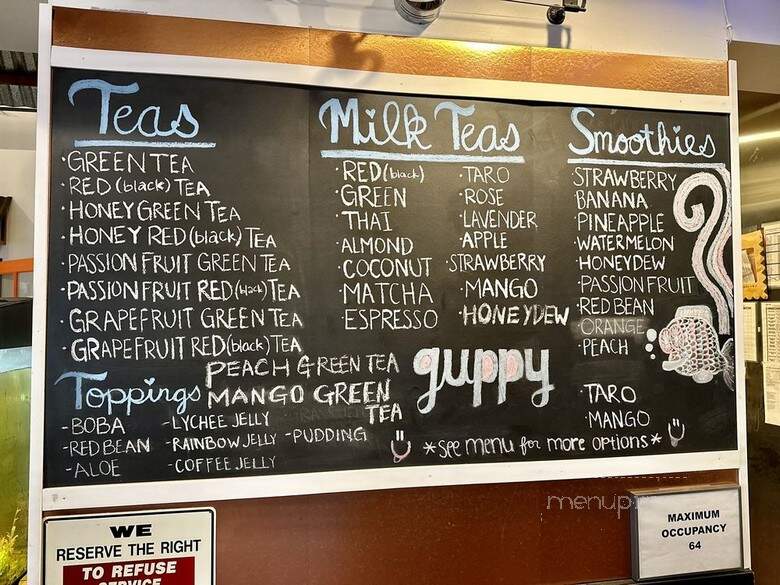 Teas
·GREEN TEA
·RED (black) TEA
·HONEY GREEN TEA
·HONEY RED (black) TEA
·PASSION FRUIT GREEN TEA
·PASSION FRUIT RED (black) TEA
·GRAPEFRUIT GREEN TEA
·GRAPEFRUIT RED (black) TEA
PEACH GREEN TEA
MANGO GREEN
TEA
Toppings
-BOBA
-RED BEAN
-ALOE
-LYCHEE JELLY
-RAINBOW JELLY
-COFFEE JELLY
-PUDDING
Milk Teas
·RED (black)
·GREEN
·THAI
·ALMOND
·COCONUT
·MATCHA
·ESPRESSO
·TARO
·ROSE
·LAVENDER
·APPLE
·STRAWBERRY
·MANGO
·HONEYDEW
guppy
Smoothies
·STRAWBERRY
BANANA
·PINEAPPLE
·WATERMELON
·HONEYDEW
·PASSION FRUIT
·RED BEAN
·ORANGE
·PEACH
·TARO
·MANGO
*see menu for more options*
WE
RESERVE THE RIGHT
TO REFUSE
SERVICE
MAXIMUM
OCCUPANCY
64